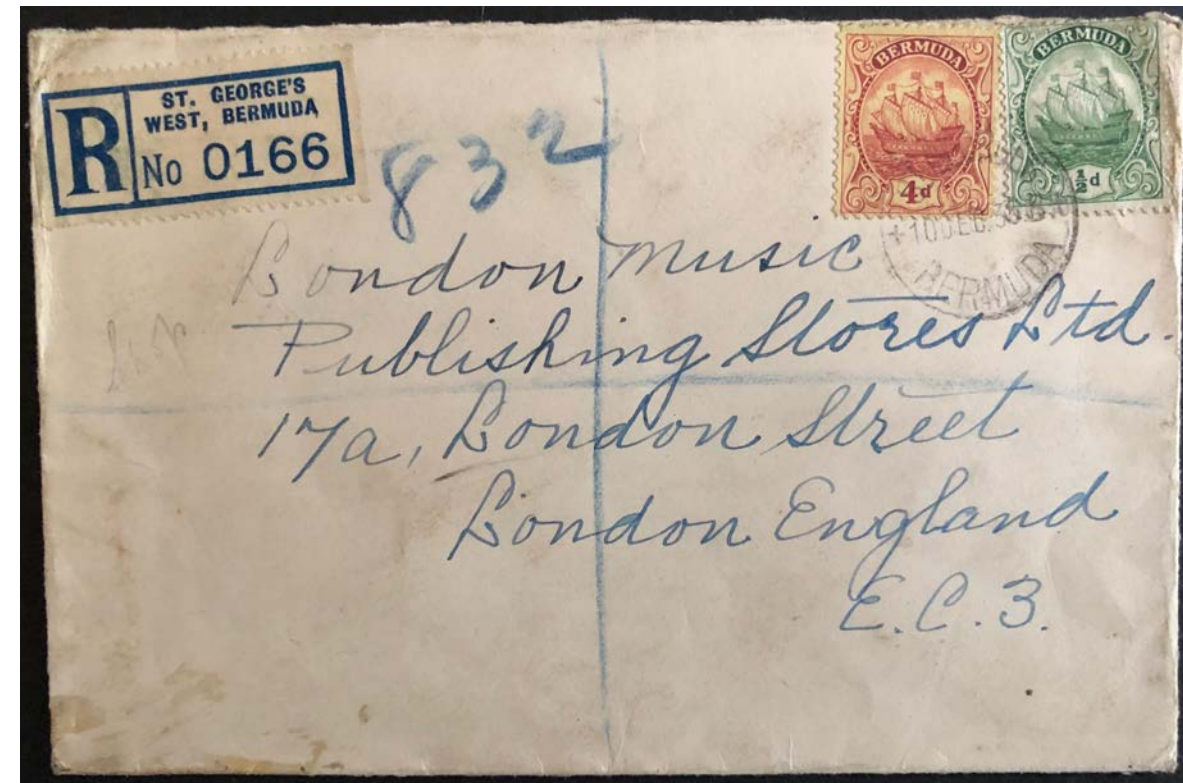 ST. GEORGE'S
WEST, BERMUDA
R No 0166
832
BERMUDA
4d
BERMUDA
½d
10 DEC
BERMUDA
London Music
Publishing Stores Ltd.
17a, London Street
London England
E.C.3.